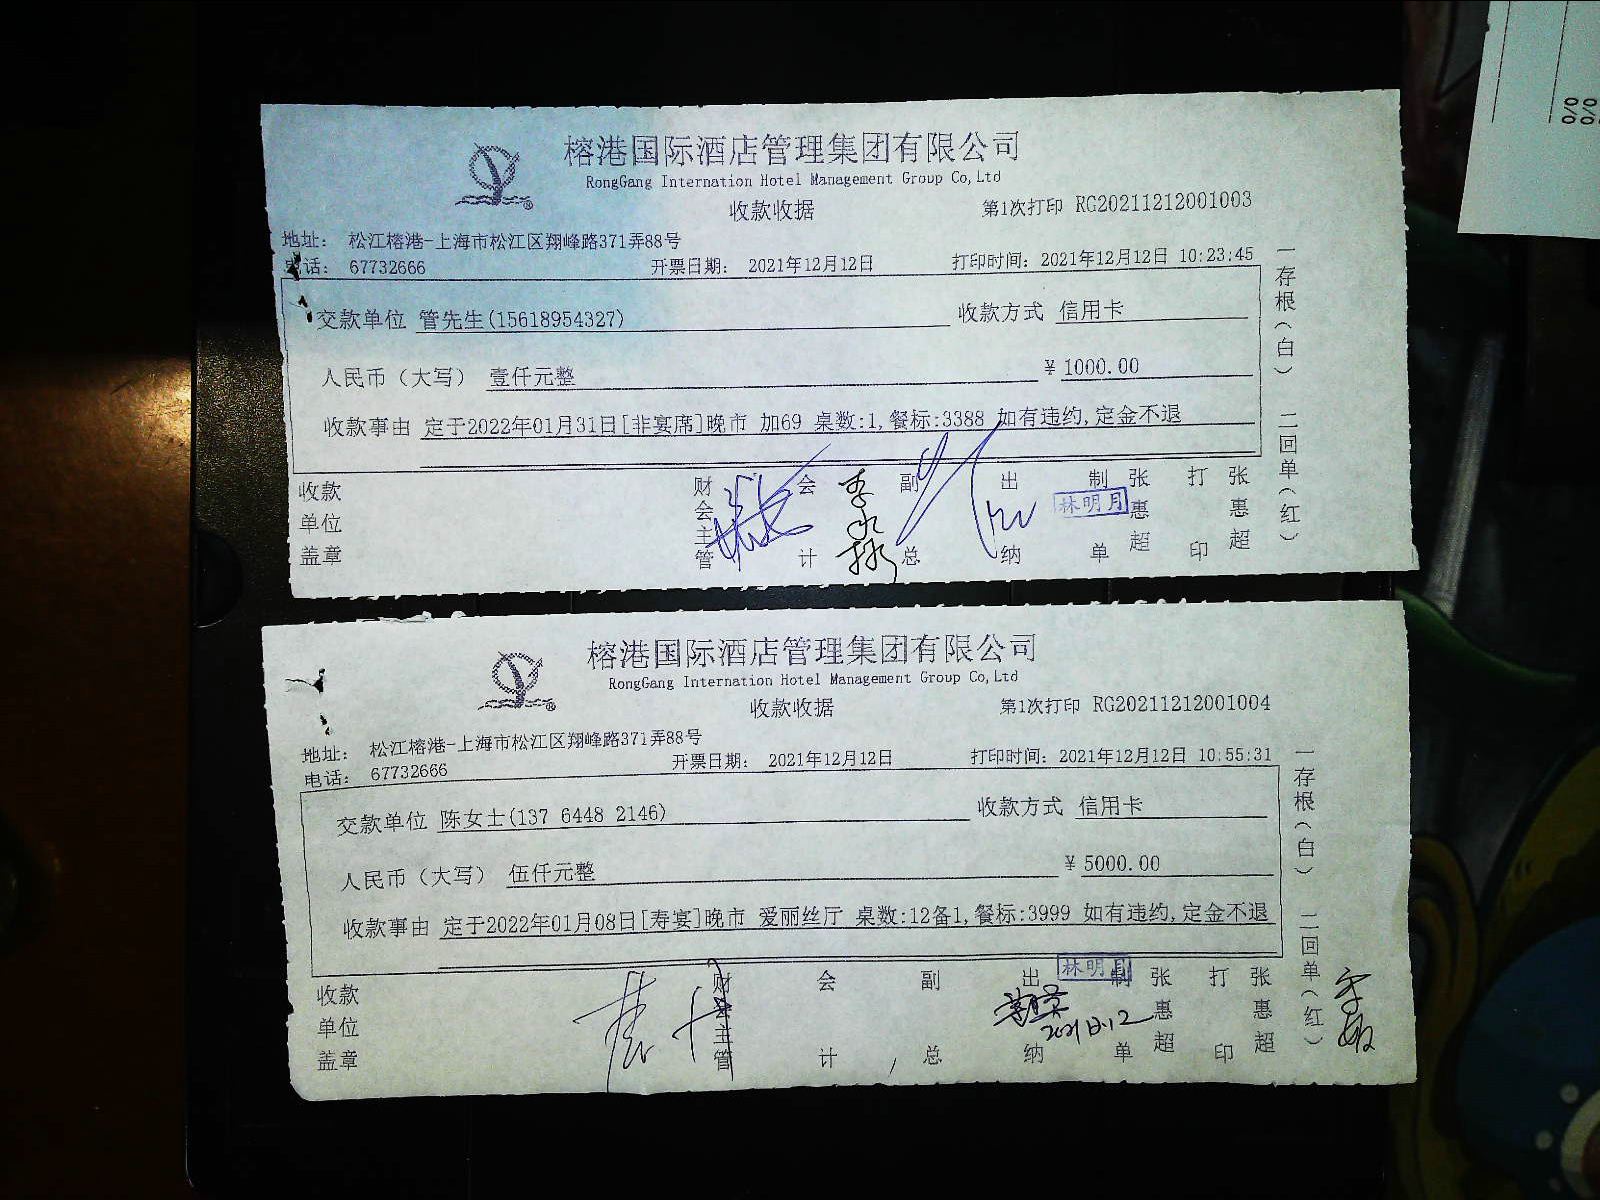 榕港国际酒店管理集团有限公司
RongGang Internation Hotel Management Group Co,Ltd
收款收据
第1次打印 RG20211212001003
地址： 松江榕港-上海市松江区翔峰路371弄88号
电话： 67732666 开票日期： 2021年12月12日 打印时间：2021年12月12日 10:23:45
交款单位 管先生(15618954327) 收款方式 信用卡
人民币（大写） 壹仟元整 ￥1000.00
收款事由 定于2022年01月31日[非宴席]晚市 加69 桌数:1,餐标:3388 如有违约,定金不退
收款单位盖章 财会主管 会计 副总 出纳 林明月 制单 张惠超 打印 张惠超
一存根（白） 二回单（红）
榕港国际酒店管理集团有限公司
RongGang Internation Hotel Management Group Co,Ltd
收款收据
第1次打印 RG20211212001004
地址： 松江榕港-上海市松江区翔峰路371弄88号
电话： 67732666 开票日期： 2021年12月12日 打印时间：2021年12月12日 10:55:31
交款单位 陈女士(137 6448 2146) 收款方式 信用卡
人民币（大写） 伍仟元整 ￥5000.00
收款事由 定于2022年01月08日[寿宴]晚市 爱丽丝厅 桌数:12备1,餐标:3999 如有违约,定金不退
收款单位盖章 财会主管 会计 副总 出纳 林明月 制单 张惠超 打印 张惠超
2021.12.12
一存根（白） 二回单（红）